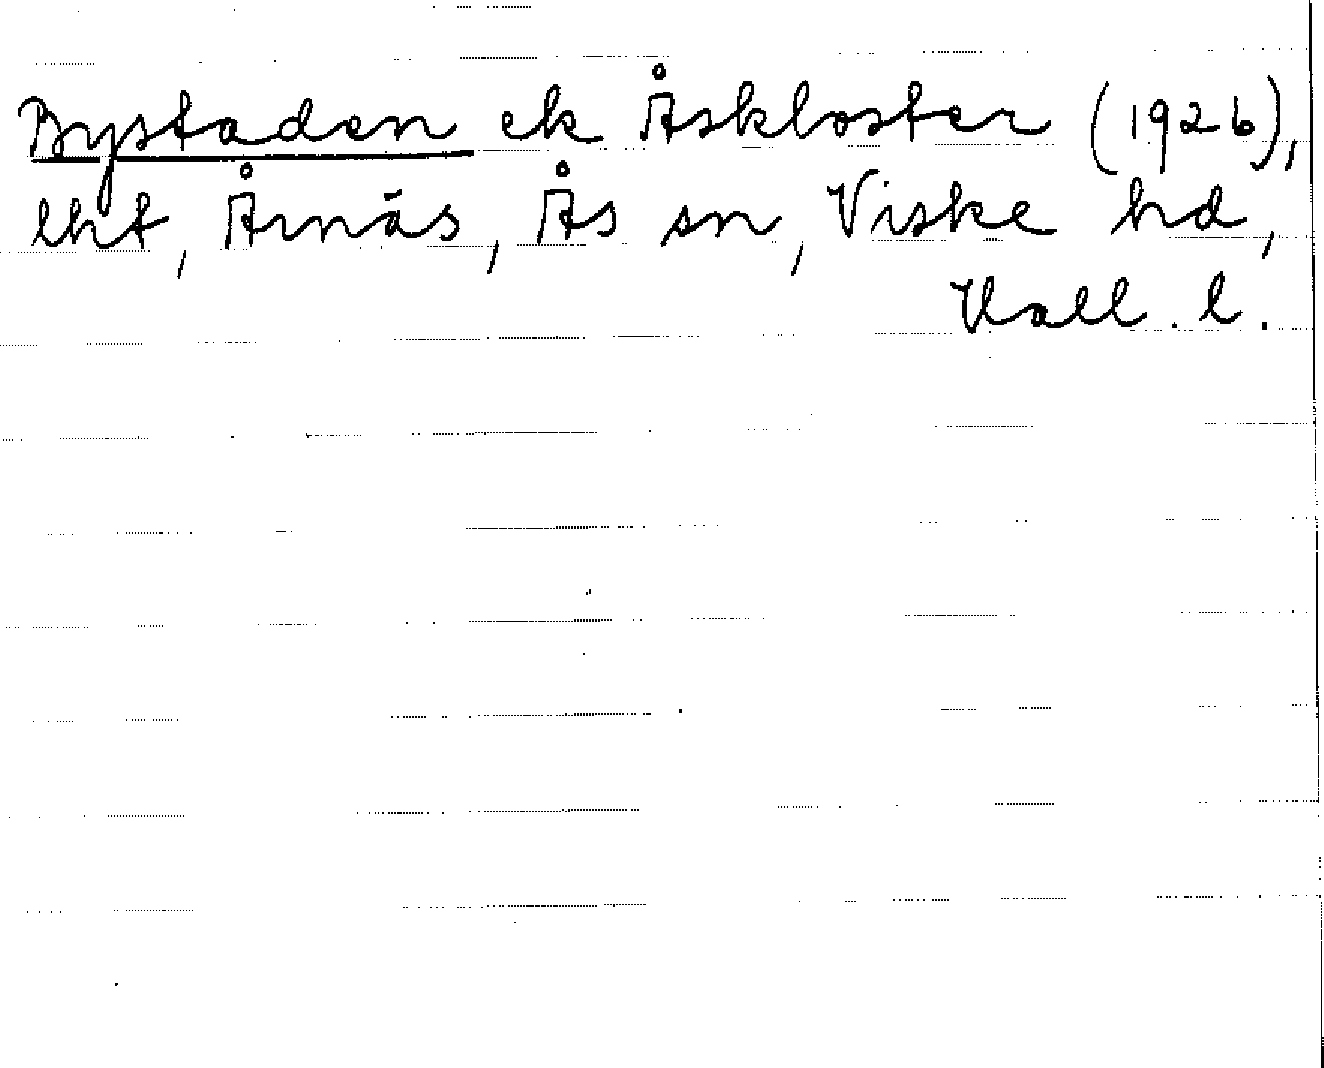 Bystaden ek Åskloster (1926),
lht, Årnäs, Ås sn, Viske hd,
Hall. l.